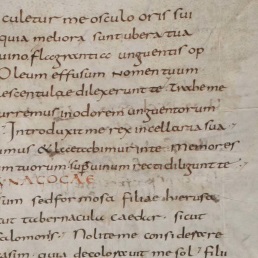 culetur me osculo oris sui
quia meliora sunt ubera tua
uino flagrantior unguentis op
Oleum effusum nomen tuum
lescentulae dilexerunt te Trahe me
urremus in odorem unguentorum
Introduxit me rex in cellaria sua
imus & laetabimur inte Memores
m tuorum super uinum recti diligunt te
YNAGOGAE
sum sed formosa filiae hierusa
ut tabernacula caedar sicut
salomonis Nolite me considerare
fusca sim quia decolorauit me sol filii